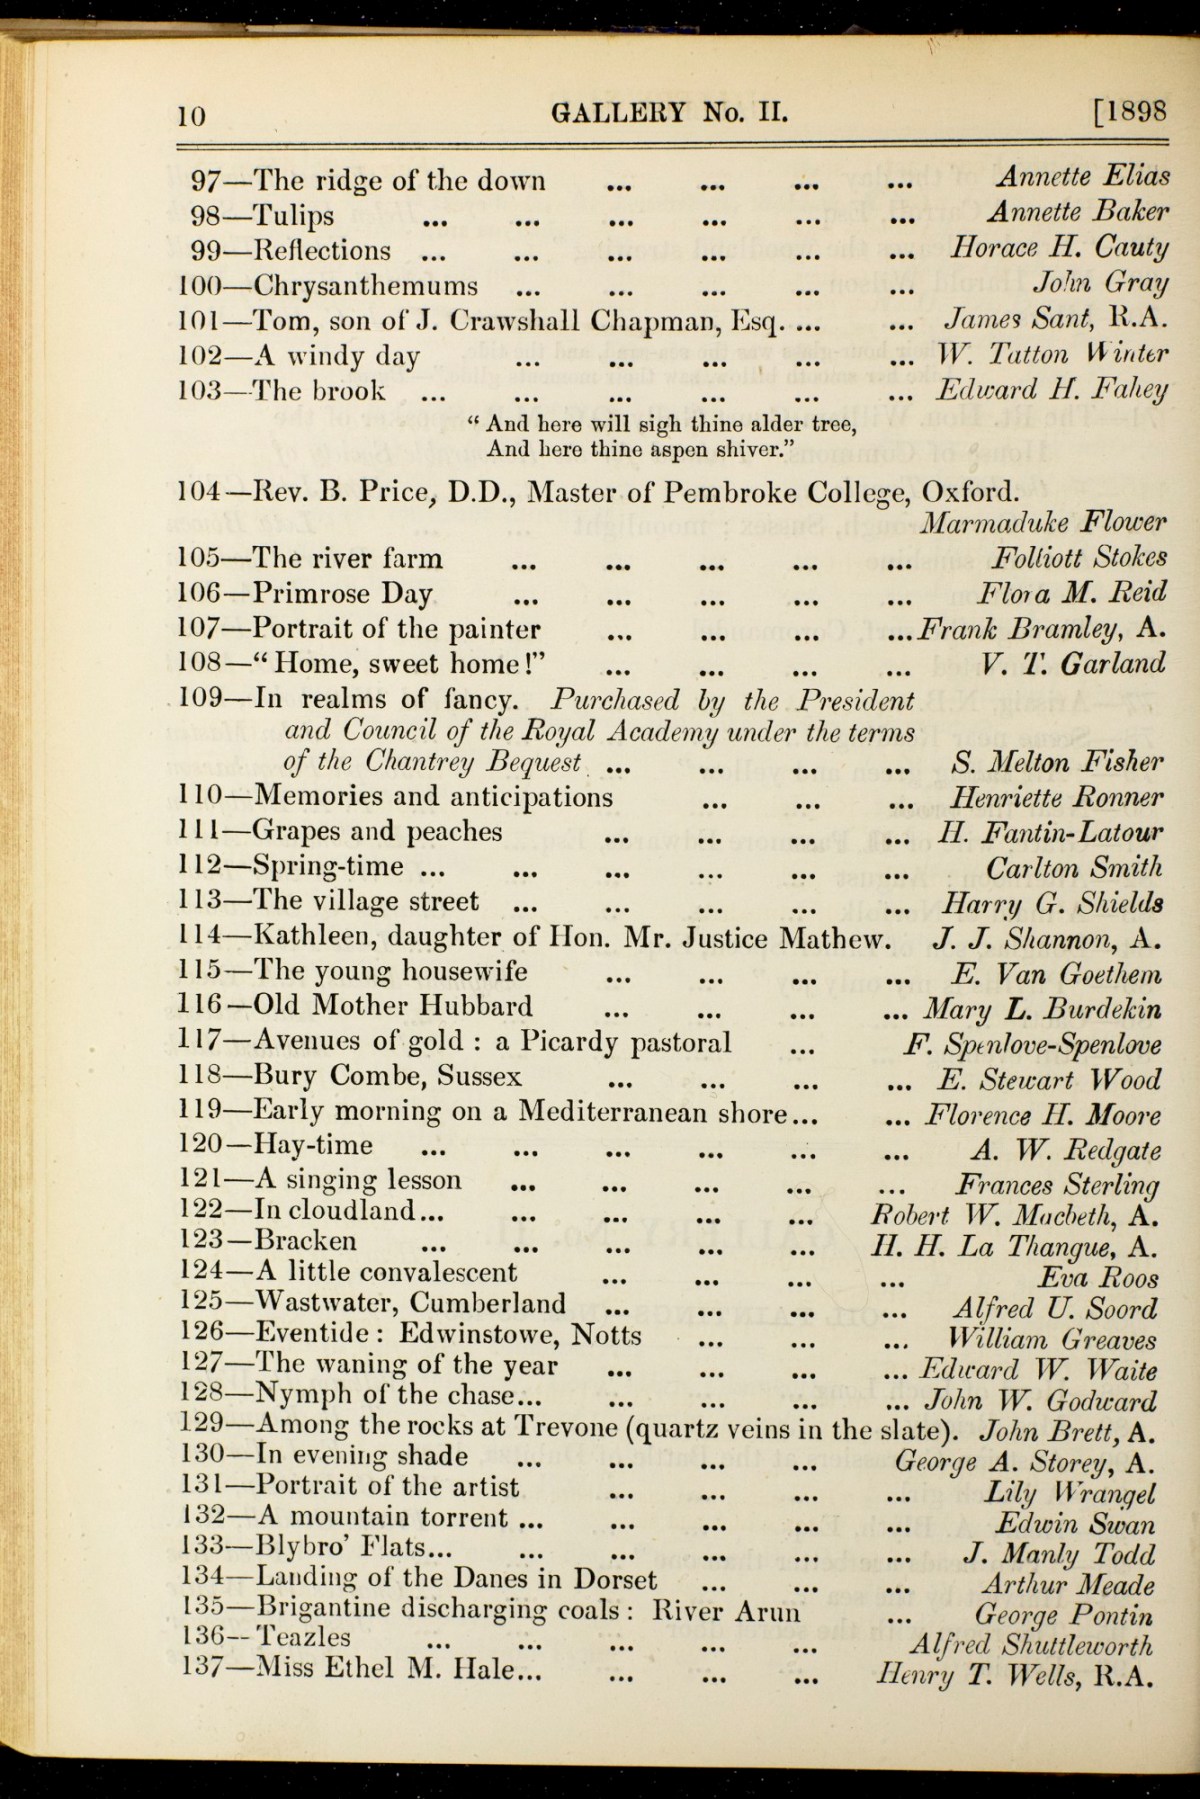 10 GALLERY No. II. [1898
97—The ridge of the down ... ... ... ... Annette Elias
98—Tulips ... ... ... ... ... ... Annette Baker
99—Reflections ... ... ... ... ... ... Horace H. Cauty
100—Chrysanthemums ... ... ... ... ... John Gray
101—Tom, son of J. Crawshall Chapman, Esq. ... ... James Sant, R.A.
102—A windy day ... ... ... ... ... W. Tatton Winter
103—The brook ... ... ... ... ... ... Edward H. Fahey
“And here will sigh thine alder tree,
And here thine aspen shiver.”
104—Rev. B. Price, D.D., Master of Pembroke College, Oxford.
Marmaduke Flower
105—The river farm ... ... ... ... ... Folliott Stokes
106—Primrose Day ... ... ... ... ... Flora M. Reid
107—Portrait of the painter ... ... ... ... Frank Bramley, A.
108—“Home, sweet home!” ... ... ... ... V. T. Garland
109—In realms of fancy. Purchased by the President
and Council of the Royal Academy under the terms
of the Chantrey Bequest ... ... ... ... S. Melton Fisher
110—Memories and anticipations ... ... ... Henriette Ronner
111—Grapes and peaches ... ... ... ... H. Fantin-Latour
112—Spring-time ... ... ... ... ... ... Carlton Smith
113—The village street ... ... ... ... ... Harry G. Shields
114—Kathleen, daughter of Hon. Mr. Justice Mathew. J. J. Shannon, A.
115—The young housewife ... ... ... ... E. Van Goethem
116—Old Mother Hubbard ... ... ... ... Mary L. Burdekin
117—Avenues of gold : a Picardy pastoral ... F. Spenlove-Spenlove
118—Bury Combe, Sussex ... ... ... ... E. Stewart Wood
119—Early morning on a Mediterranean shore... ... Florence H. Moore
120—Hay-time ... ... ... ... ... ... A. W. Redgate
121—A singing lesson ... ... ... ... ... Frances Sterling
122—In cloudland... ... ... ... ... Robert W. Macbeth, A.
123—Bracken ... ... ... ... ... H. H. La Thangue, A.
124—A little convalescent ... ... ... ... Eva Roos
125—Wastwater, Cumberland ... ... ... ... Alfred U. Soord
126—Eventide : Edwinstowe, Notts ... ... ... William Greaves
127—The waning of the year ... ... ... ... Edward W. Waite
128—Nymph of the chase... ... ... ... ... John W. Godward
129—Among the rocks at Trevone (quartz veins in the slate). John Brett, A.
130—In evening shade ... ... ... ... George A. Storey, A.
131—Portrait of the artist ... ... ... ... Lily Wrangel
132—A mountain torrent ... ... ... ... ... Edwin Swan
133—Blybro’ Flats... ... ... ... ... ... J. Manly Todd
134—Landing of the Danes in Dorset ... ... ... Arthur Meade
135—Brigantine discharging coals : River Arun ... George Pontin
136—Teazles ... ... ... ... ... Alfred Shuttleworth
137—Miss Ethel M. Hale... ... ... ... Henry T. Wells, R.A.